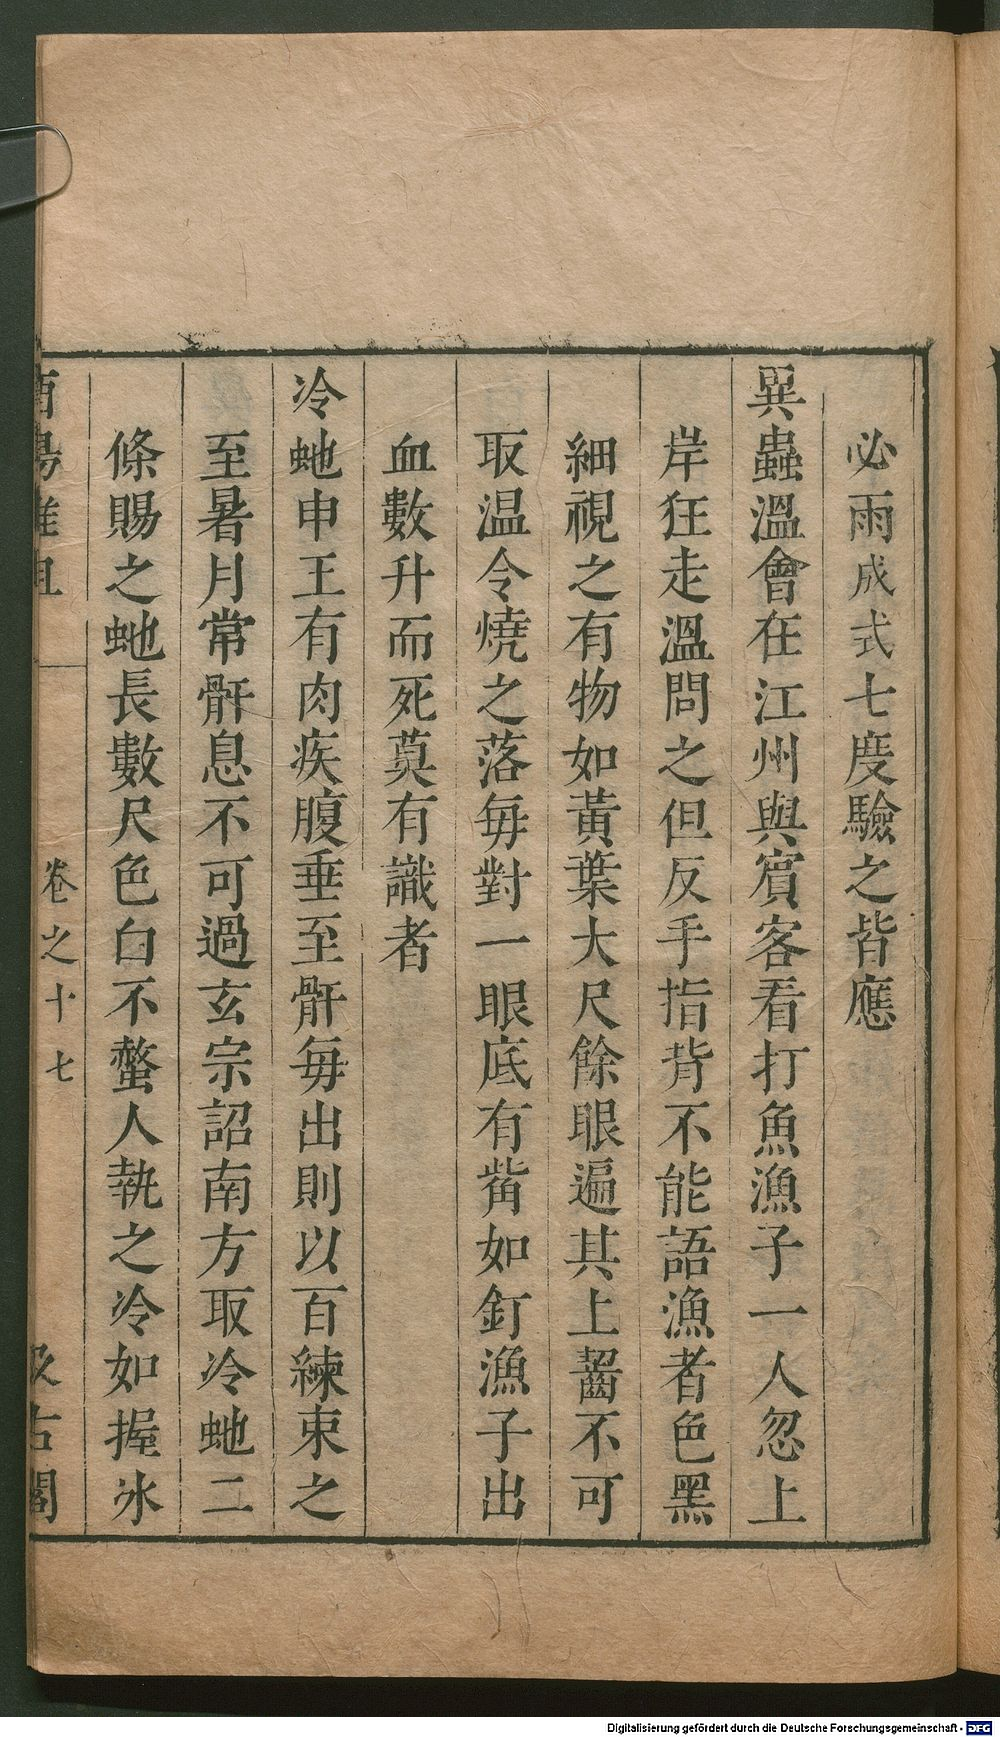 必雨成式七度驗之皆應
異蟲溫會在江州與賓客看打魚漁子一人忽上
岸狂走溫問之但反手指背不能語漁者色黑
細視之有物如黃葉大尺餘眼遍其上齧不可
取温令燒之落每對一眼底有觜如釘漁子出
血數升而死莫有識者
冷虵申王有肉疾腹垂至骭每出則以百練束之
至暑月常鼾息不可過玄宗詔南方取冷虵二
條賜之虵長數尺色白不螫人執之冷如握氷
酉陽雜俎 卷之十七 汲古閣
Digitalisierung gefördert durch die Deutsche Forschungsgemeinschaft - DFG